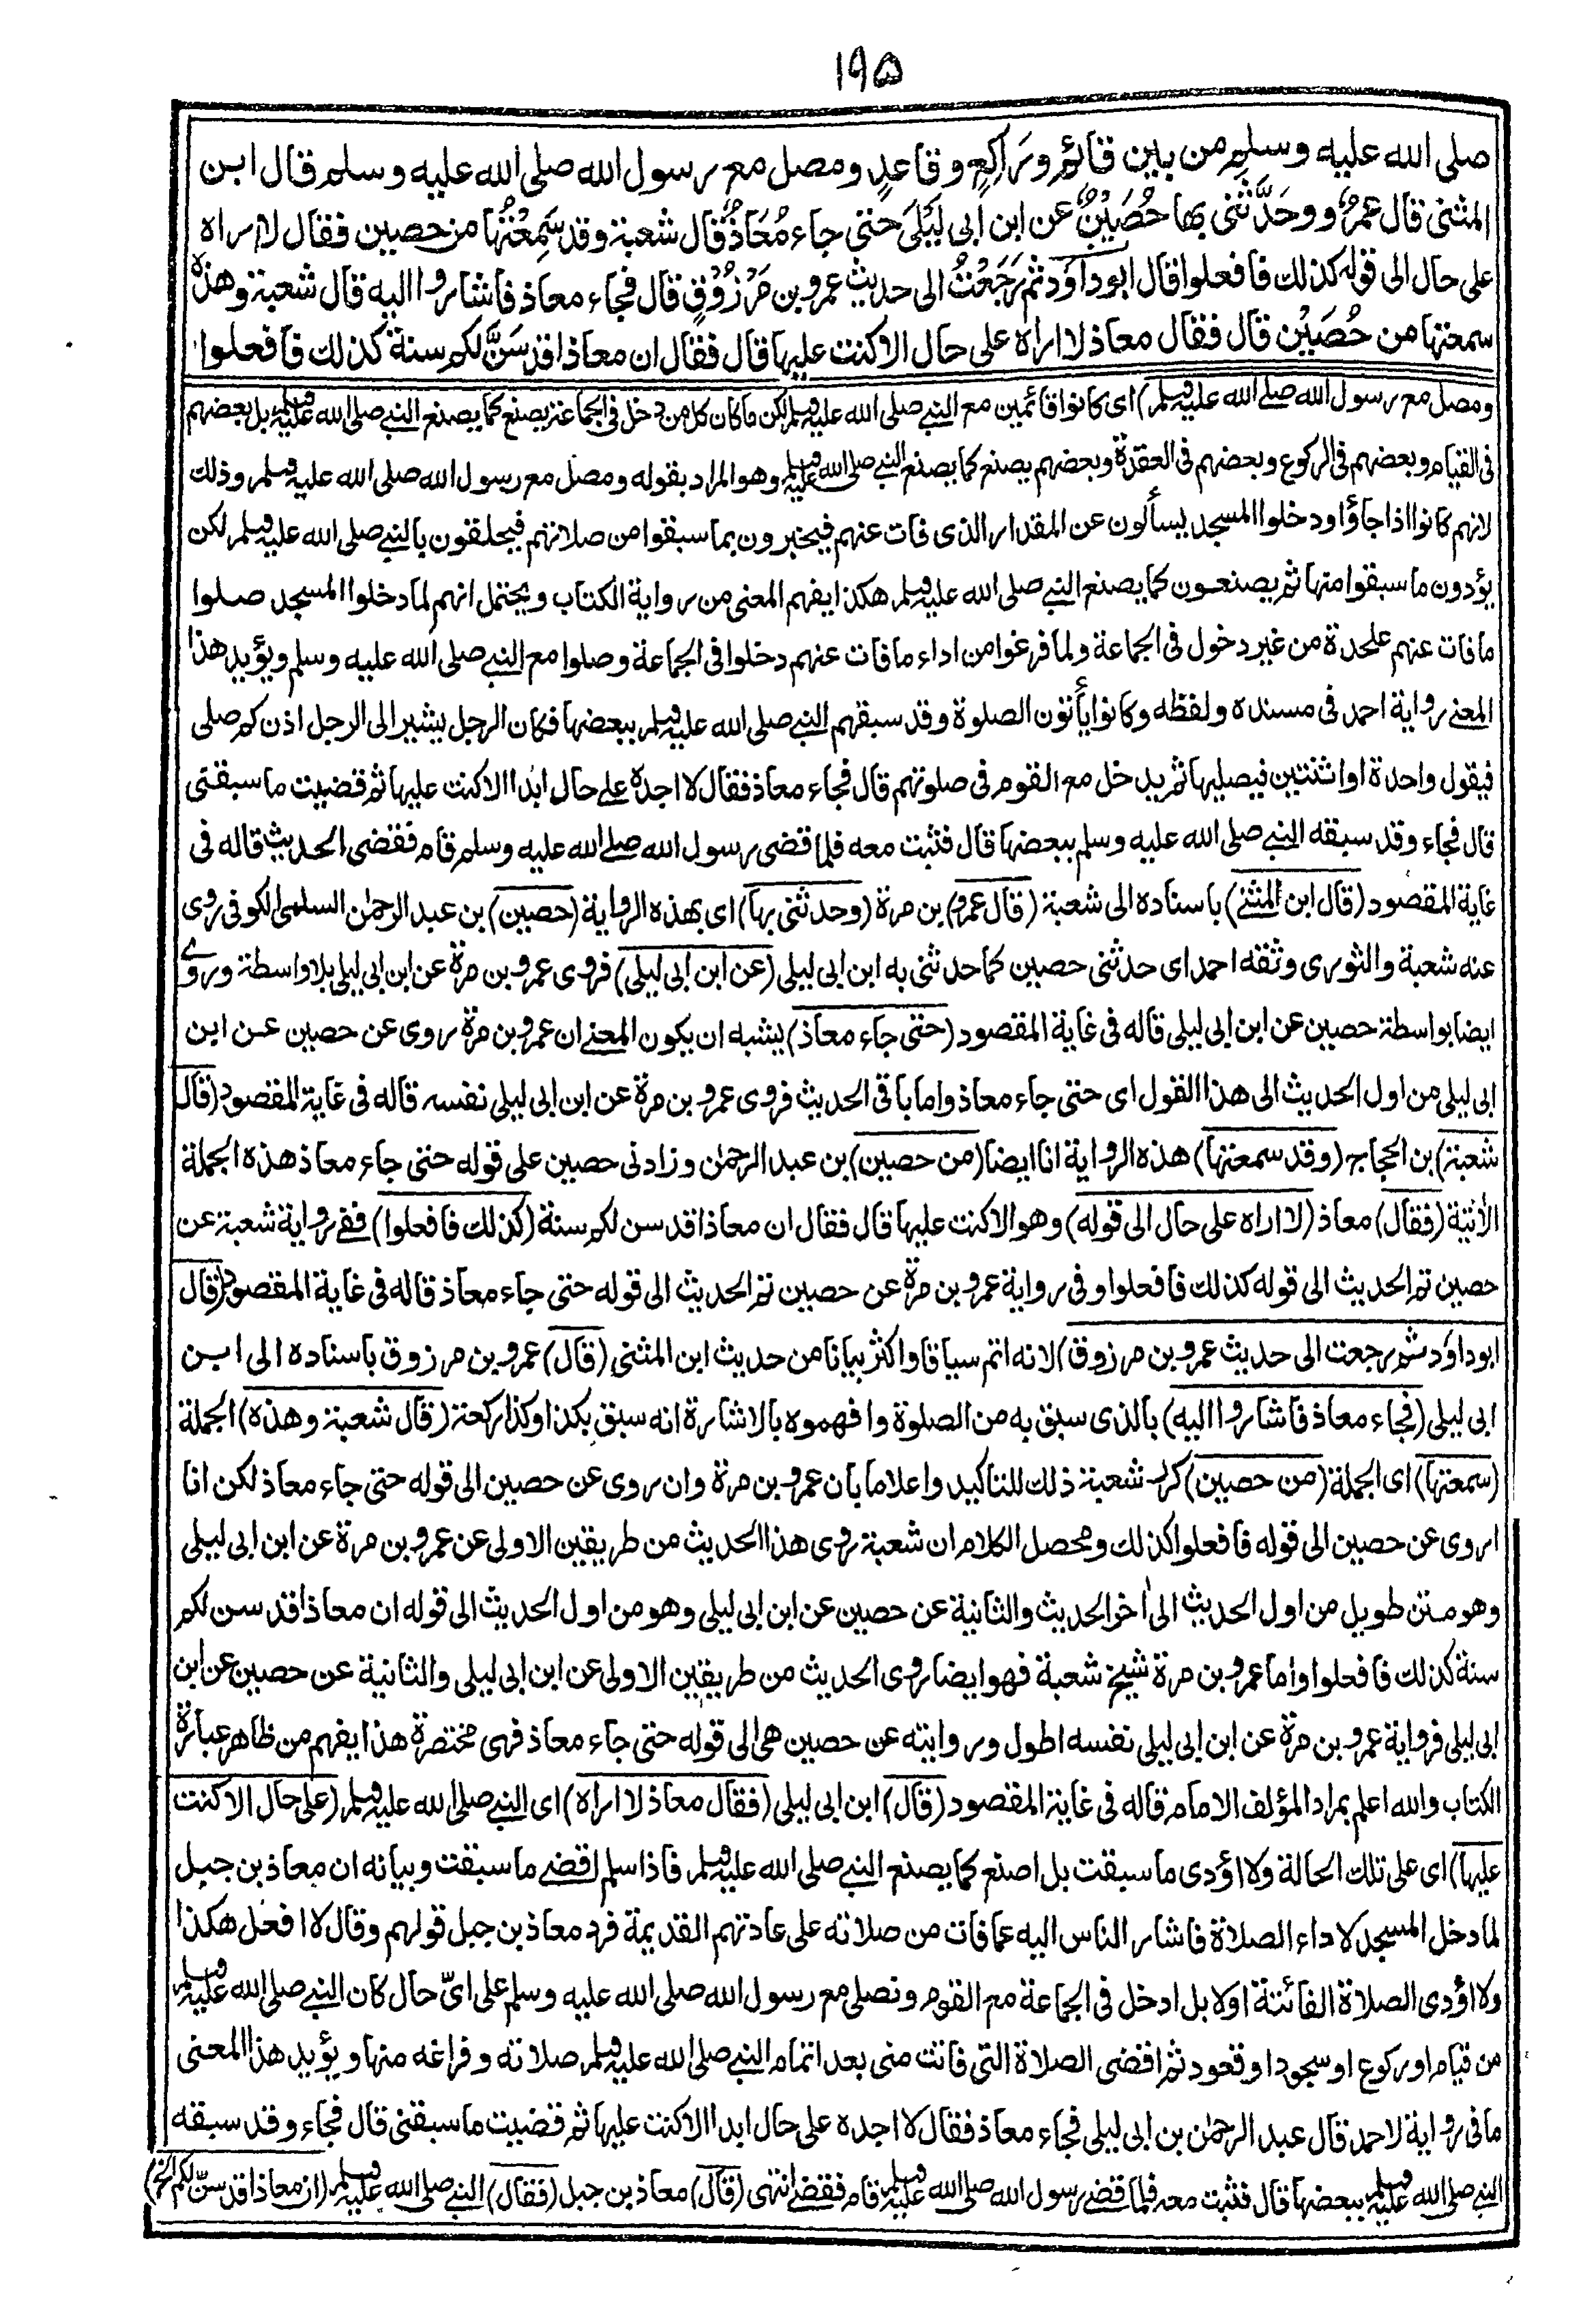 ١٩٥
صلى الله عليه وسلم من بين قائم وَرَاكِعٍ وقاعدٍ ومصل مع رسول الله صلى الله عليه وسلم قال ابن
المثنى قال عمرٌو وحَدَّثنى بها حُصَيْنٌ عن ابن ابى لَيْلَىَ حتى جاء مُعَاذٌ قال شعبة وقد سَمِعْتُهَا من حصين فقال لا اراه
على حال الى قوله كذلك فافعلوا قال ابوداؤد ثم رَجَعْتُ الى حديث عمرو بن مَرْزُوْقٍ قال فجاء معاذ فاشاروا اليه قال شعبة وهذه
سمعتها من حُصَيْن قال فقال معاذ لا اراه على حال الا كنت عليها قال فقال ان معاذا قد سَنَّ لكم سنة كذلك فافعلوا
ومصل مع رسول الله صلى الله عليه وسلم) اى كانوا قائمين مع النبى صلى الله عليه وسلم لكن ما كان كل من دخل فى الجماعة يصنع كما يصنع النبى صلى الله عليه وسلم بل بعضهم
فى القيام وبعضهم فى الركوع وبعضهم فى القعدة وبعضهم يصنع كما يصنع النبى صلى الله عليه وسلم وهو المراد بقوله ومصل مع رسول الله صلى الله عليه وسلم وذلك
لانهم كانوا اذا جاؤا ودخلوا المسجد يسألون عن المقدار الذى فات عنهم فيخبرون بما سبقوا من صلاتهم فيحلقون بالنبى صلى الله عليه وسلم لكن
يؤدون ما سبقوا منها ثم يصنعون كما يصنع النبى صلى الله عليه وسلم هكذا يفهم المعنى من رواية الكتاب ويحتمل انهم لما دخلوا المسجد صلوا
ما فات عنهم علحدة من غير دخول فى الجماعة ولما فرغوا من اداء ما فات عنهم دخلوا فى الجماعة وصلوا مع النبى صلى الله عليه وسلم ويؤيد هذا
المعنى رواية احمد فى مسنده ولفظه وكانوا يأتون الصلوة وقد سبقهم النبى صلى الله عليه وسلم ببعضها فكان الرجل يشير الى الرجل اذن كم صلى
فيقول واحدة او اثنتين فيصليها ثم يدخل مع القوم فى صلوتهم قال فجاء معاذ فقال لا اجده على حال ابدا الا كنت عليها ثم قضيت ما سبقنى
قال فجاء وقد سبقه النبى صلى الله عليه وسلم ببعضها قال فثبت معه فلما قضى رسول الله صلى الله عليه وسلم قام فقضى الحديث قاله فى
غاية المقصود (قال ابن المثنى) باسناده الى شعبة (قال عمرو) بن مرة (وحدثنى بها) اى بهذه الرواية (حصين) بن عبد الرحمٰن السلمى الكوفى روى
عنه شعبة والثورى وثقه احمد اى حدثنى حصين كما حدثنى به ابن ابى ليلى (عن ابن ابى ليلى) فروى عمرو بن مرة عن ابن ابى ليلى بلا واسطة وروى
ايضا بواسطة حصين عن ابن ابى ليلى قاله فى غاية المقصود (حتى جاء معاذ) يشبه ان يكون المعنى ان عمرو بن مرة روى عن حصين عن ابن
ابى ليلى من اول الحديث الى هذا القول اى حتى جاء معاذ واما باقى الحديث فروى عمرو بن مرة عن ابن ابى ليلى نفسه قاله فى غاية المقصود (قال
شعبة) بن الحجاج (وقد سمعتها) هذه الرواية انا ايضا (من حصين) بن عبد الرحمٰن وزادنى حصين على قوله حتى جاء معاذ هذه الجملة
الاٰتية (فقال) معاذ (لا اراه على حال الى قوله) وهو الا كنت عليها قال فقال ان معاذا قد سن لكم سنة (كذلك فافعلوا) ففى رواية شعبة عن
حصين تم الحديث الى قوله كذلك فافعلوا وفى رواية عمرو بن مرة عن حصين تم الحديث الى قوله حتى جاء معاذ قاله فى غاية المقصود (قال
ابوداؤد ثم رجعت الى حديث عمرو بن مرزوق) لانه اتم سياقا واكثر بيانا من حديث ابن المثنى (قال) عمرو بن مرزوق باسناده الى ابن
ابى ليلى (فجاء معاذ فاشاروا اليه) بالذى سبق به من الصلوة وافهموه بالاشارة انه سبق بكذا وكذا ركعة (قال شعبة وهذه) الجملة
(سمعتها) اى الجملة (من حصين) كرر شعبة ذلك للتاكيد واعلاما بان عمرو بن مرة وان روى عن حصين الى قوله حتى جاء معاذ لكن انا
اروى عن حصين الى قوله فافعلوا كذلك ومحصل الكلام ان شعبة روى هذا الحديث من طريقين الاولى عن عمرو بن مرة عن ابن ابى ليلى
وهو متن طويل من اول الحديث الى اٰخر الحديث والثانية عن حصين عن ابن ابى ليلى وهو من اول الحديث الى قوله ان معاذا قد سن لكم
سنة كذلك فافعلوا واما عمرو بن مرة شيخ شعبة فهو ايضا روى الحديث من طريقين الاولى عن ابن ابى ليلى والثانية عن حصين عن ابن
ابى ليلى فرواية عمرو بن مرة عن ابن ابى ليلى نفسه اطول وروايته عن حصين هى الى قوله حتى جاء معاذ فهى مختصرة هذا يفهم من ظاهر عبارة
الكتاب والله اعلم بمراد المؤلف الامام قاله فى غاية المقصود (قال) ابن ابى ليلى (فقال معاذ لا اراه) اى النبى صلى الله عليه وسلم (على حال الا كنت
عليها) اى على تلك الحالة ولا اؤدى ما سبقت بل اصنع كما يصنع النبى صلى الله عليه وسلم فاذا سلم اقضى ما سبقت وبيانه ان معاذ بن جبل
لما دخل المسجد لاداء الصلاة فاشار الناس اليه عما فات من صلاته على عادتهم القديمة فرد معاذ بن جبل قولهم وقال لا افعل هكذا
ولا اؤدى الصلاة الفائتة اولا بل ادخل فى الجماعة مع القوم ونصلى مع رسول الله صلى الله عليه وسلم على اىّ حال كان النبى صلى الله عليه وسلم
من قيام او ركوع او سجود او قعود ثم اقضى الصلاة التى فاتت منى بعد اتمام النبى صلى الله عليه وسلم صلاته وفراغه منها ويؤيد هذا المعنى
ما فى رواية لاحمد قال عبد الرحمٰن بن ابى ليلى فجاء معاذ فقال لا اجده على حال ابدا الا كنت عليها ثم قضيت ما سبقنى قال فجاء وقد سبقه
النبى صلى الله عليه وسلم ببعضها قال فثبت معه فلما قضى رسول الله صلى الله عليه وسلم قام فقضى انتهى (قال) معاذ بن جبل (فقال) النبى صلى الله عليه وسلم (ان معاذا قد سنّ لكم الخ)